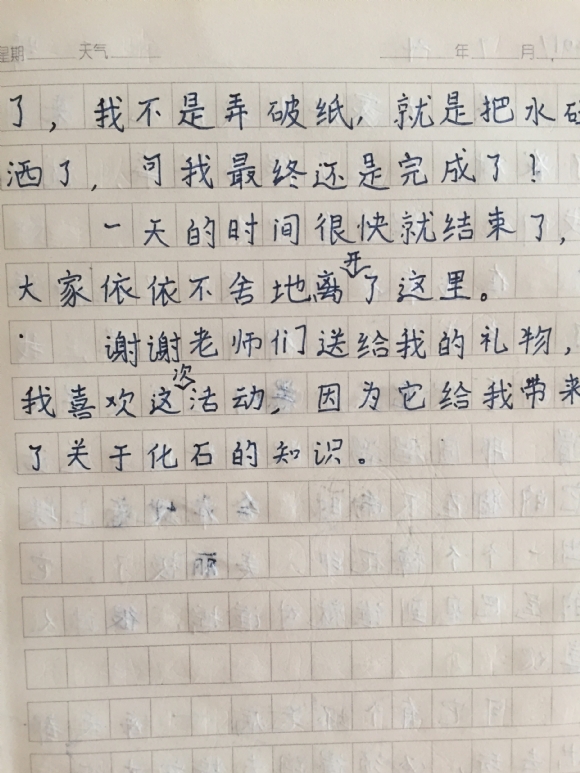 星期 天气 年 月
了，我不是弄破纸，就是把水
洒了，可我最终还是完成了！
一天的时间很快就结束了，
大家依依不舍地离开了这里。
谢谢老师们送给我的礼物，
我喜欢这次活动，因为它给我带来
了关于化石的知识。